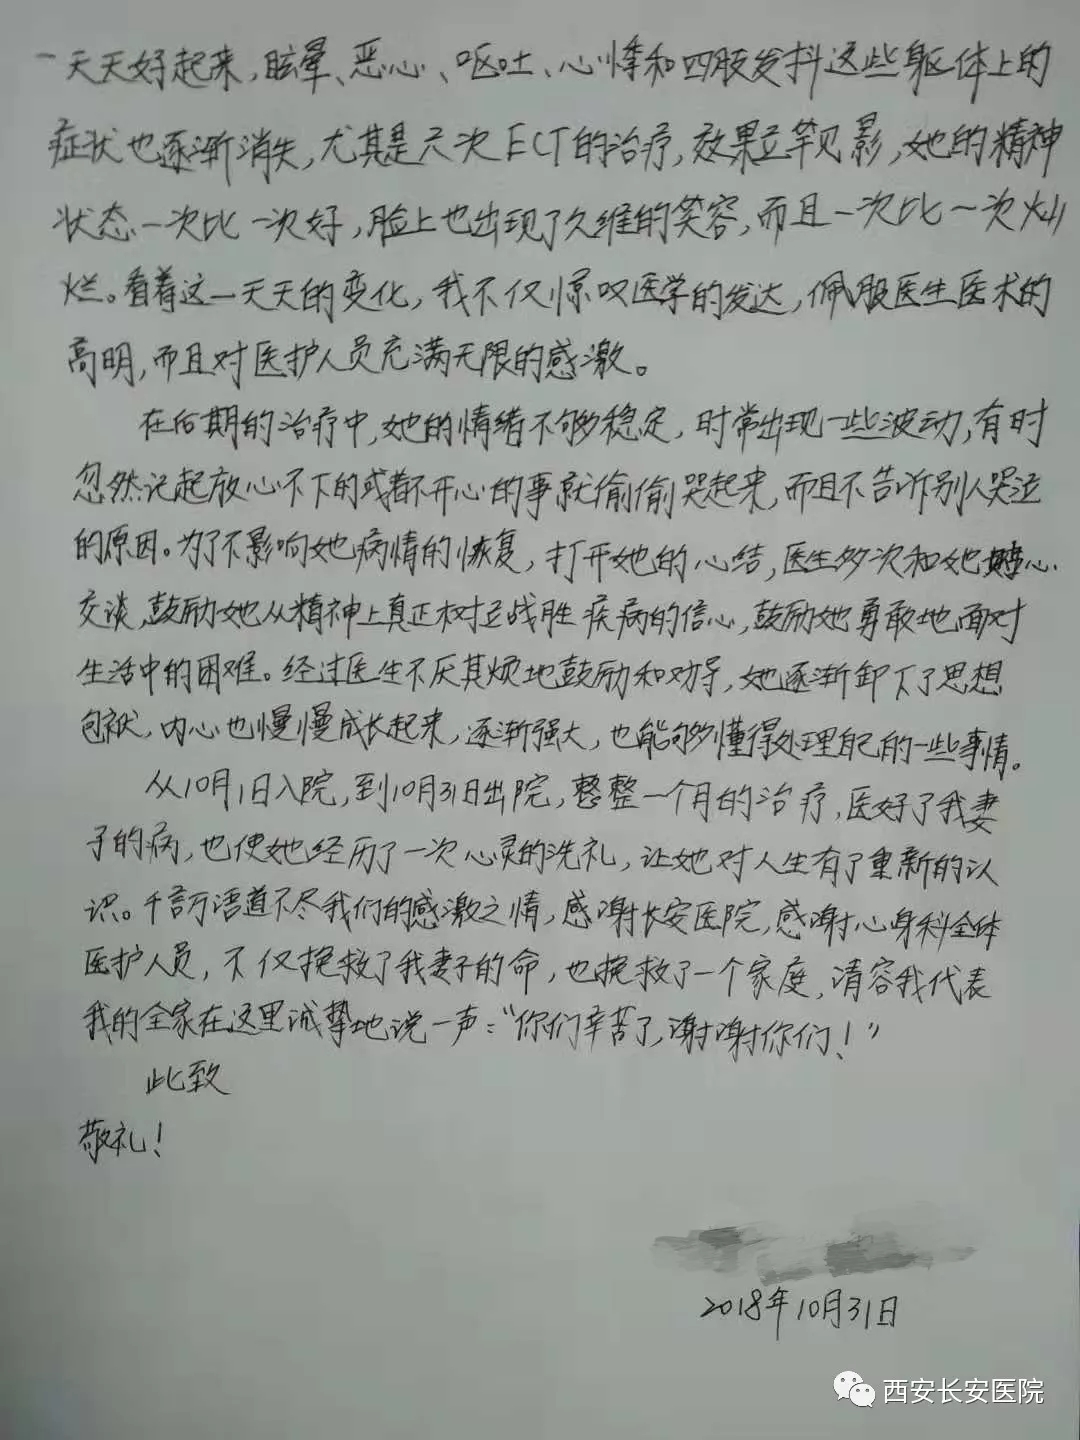 一天天好起来，眩晕、恶心、呕吐、心悸和四肢发抖这些躯体上的
症状也逐渐消失，尤其是六次ECT的治疗，效果立竿见影，她的精神
状态一次比一次好，脸上也出现了久维的笑容，而且一次比一次灿
烂。看着这一天天的变化，我不仅惊叹医学的发达，佩服医生医术的
高明，而且对医护人员充满无限的感激。
在后期的治疗中，她的情绪不够稳定，时常出现一些波动，有时
忽然记起放心不下的或者不开心的事就偷偷哭起来，而且不告诉别人哭泣
的原因。为了不影响她病情的恢复，打开她的心结，医生多次和她心
交谈，鼓励她从精神上真正树立战胜疾病的信心，鼓励她勇敢地面对
生活中的困难。经过医生不厌其烦地鼓励和劝导，她逐渐卸下了思想
包袱，内心也慢慢成长起来，逐渐强大，也能够懂得处理自己的一些事情。
从10月1日入院，到10月31日出院，整整一个月的治疗，医好了我妻
子的病，也使她经历了一次心灵的洗礼，让她对人生有了重新的认
识。千言万语道不尽我们的感激之情，感谢长安医院，感谢心身科全体
医护人员，不仅挽救了我妻子的命，也挽救了一个家庭，请容我代表
我的全家在这里诚挚地说一声：“你们辛苦了，谢谢你们！”
此致
敬礼！
2018年10月31日
西安长安医院